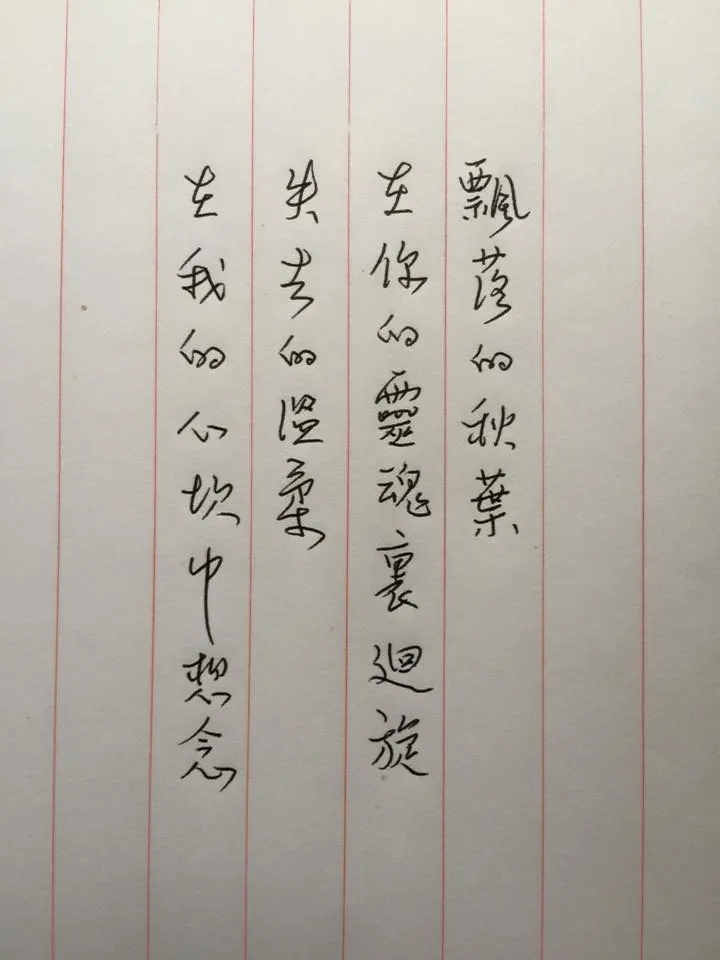 飄落的秋葉
在你的靈魂裏迴旋
失去的溫柔
在我的心坎中想念